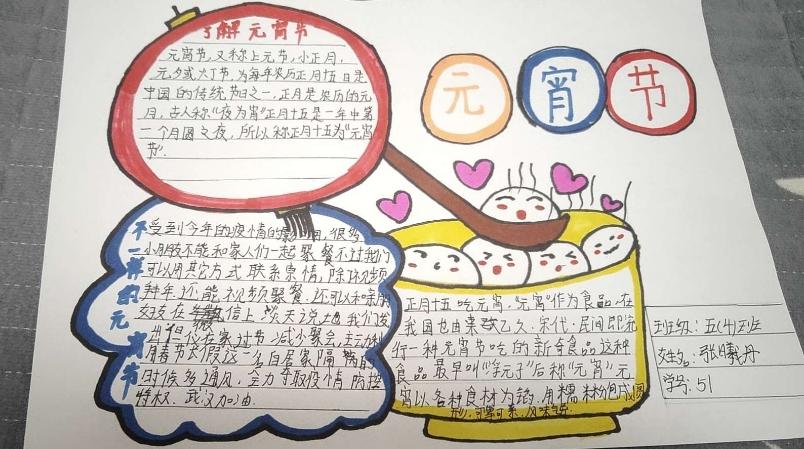 了解元宵节
元宵节,又称上元节,小正月,
元夕或灯节,为每年农历正月十五日是
中国的传统节日之一,正月是农历的元
月,古人称"夜为宵"正月十五是一年中第
一个月圆之夜,所以称正月十五为"元宵
节".
元宵节
不一样的元宵节
受到今年的疫情的影响,很多
小朋友不能和家人们一起聚餐不过我们
可以用其它方式联系亲情,除了视频
拜年还能视频聚餐.还可以和亲朋
好友在微信上谈天说地我们
但位在家过节.减少聚会,
用春节大假这一名自居家隔离的
时候多通风,全力争取疫情防控
特权.武汉加油.
正月十五吃元宵."元宵"作为食品,在
我国也由来已久.宋代.民间即流
行一种元宵节吃的新奇食品这种
食品最早叫"浮元子"后称"元宵"元
宵以各种食材为馅.用糯米粉包成圆
形,可荤可素,风味
班级:五(4)班
姓名:张曦丹
学号:51